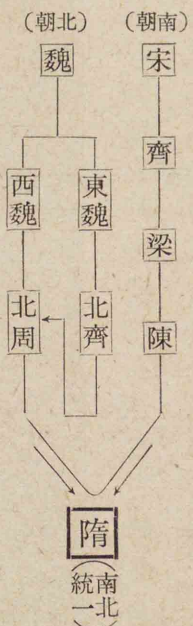 (南朝)
宋
齊
梁
陳
(北朝)
魏
東魏
北齊
西魏
北周
隋
(南北
統一